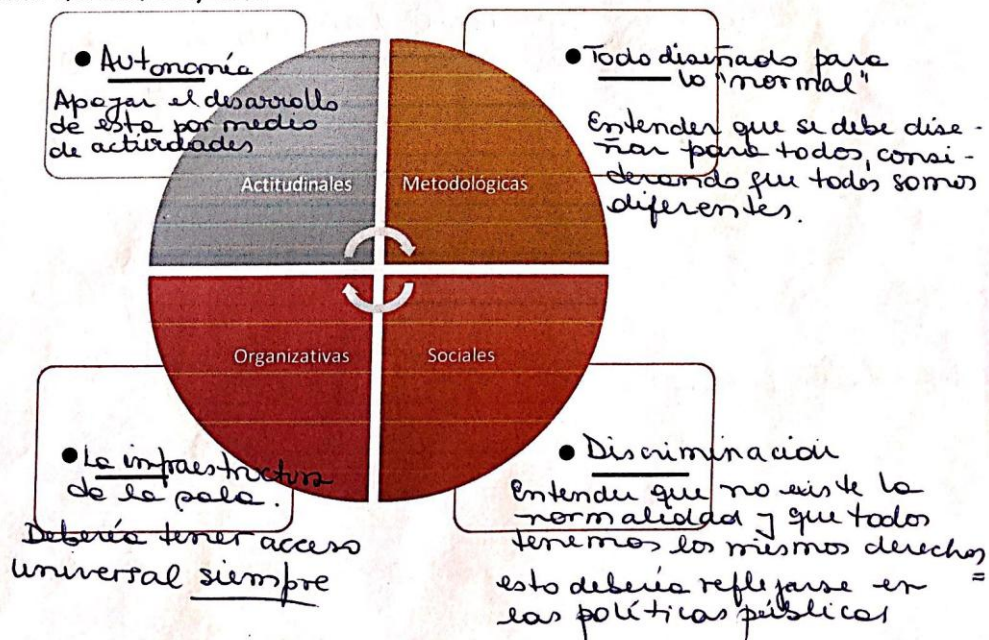 ● Autonomía
Apoyar el desarrollo
de esta por medio
de actividades
Actitudinales
Metodológicas
● Todo diseñado para
lo "normal"
Entender que se debe dise-
ñar para todos, consi-
derando que todos somos
diferentes.
Organizativas
Sociales
● La infraestructura
de la
Debería tener acceso
universal siempre
● Discriminación
Entender que no existe la
normalidad y que todos
tenemos los mismos derechos
=
esto debería reflejarse en
las políticas públicas